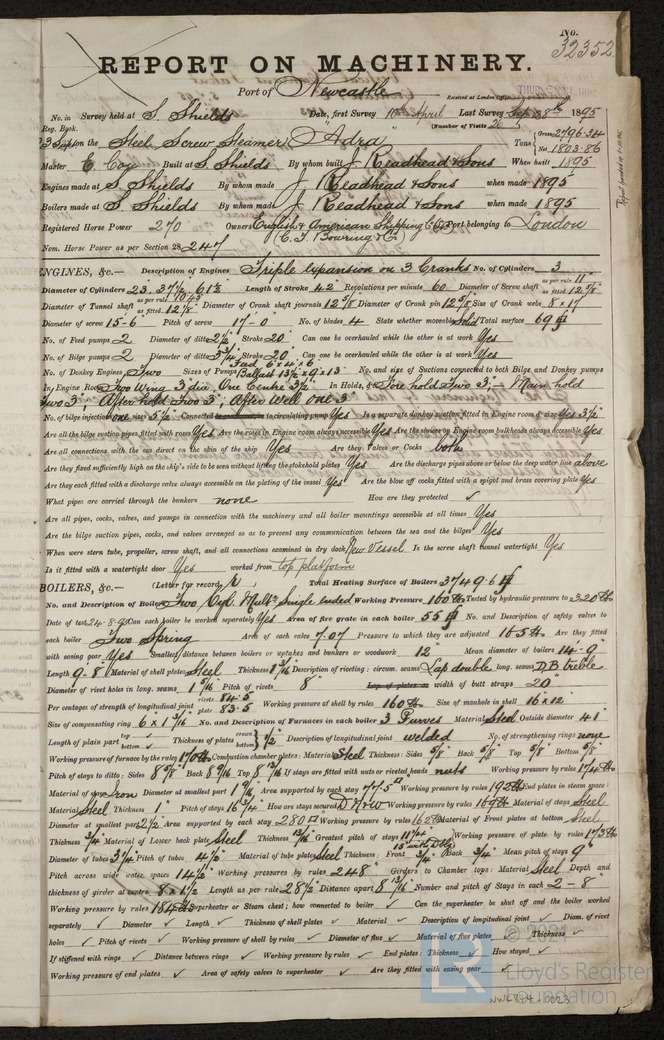 No. 32352
REPORT ON MACHINERY.
Port of Newcastle
Received at London Office
No. in Survey held at S. Shields Date, first Survey 10th April Last Survey Sep 28th 1895
Reg. Book. (Number of Visits 20)
on the Steel Screw Steamer "Adra" Tons Gross 2796.34 Net 1803.86
Master E. Coze Built at S. Shields By whom built J. Readhead & Sons When built 1895
Engines made at S. Shields By whom made J. Readhead & Sons when made 1895
Boilers made at S. Shields By whom made J. Readhead & Sons when made 1895
Registered Horse Power 270 Owners English & American Shipping Co Port belonging to London
(C. T. Bowring & Co)
Nom. Horse Power as per Section 28 247
ENGINES, &c.— Description of Engines Triple expansion on 3 Cranks No. of Cylinders 3
Diameter of Cylinders 23, 37½, 61½ Length of Stroke 42 Revolutions per minute 60 Diameter of Screw shaft as per rule 11" as fitted 12 5/8
Diameter of Tunnel shaft as per rule as fitted 12 1/8" Diameter of Crank shaft journals 12 5/8 Diameter of Crank pin 12 5/8 Size of Crank webs 8 x 17
Diameter of screw 15-6 Pitch of screw 17-0 No. of blades 4 State whether moveable Solid Total surface 69
No. of Feed pumps 2 Diameter of ditto 2½ Stroke 20 Can one be overhauled while the other is at work Yes
No. of Bilge pumps 2 Diameter of ditto 3¾ Stroke 20 Can one be overhauled while the other is at work Yes
No. of Donkey Engines Two Sizes of Pumps Feed 6 x 4 x 6 Ballast 13½ x 9 x 13 No. and size of Suctions connected to both Bilge and Donkey pumps
In Engine Room Two Wing 3 dia, One Centre 3½ In Holds, &c. Fore hold Two 3; Main hold
Two 3; After hold Two 3; After Well one 3"
No. of bilge injections one sizes 5½ Connected to circulating pump Yes Is a separate donkey suction fitted in Engine room & size Yes 3½
Are all the bilge suction pipes fitted with roses Yes Are the roses in Engine room always accessible Yes Are the sluices on Engine room bulkheads always accessible Yes
Are all connections with the sea direct on the skin of the ship Yes Are they Valves or Cocks both
Are they fixed sufficiently high on the ship's side to be seen without lifting the stokehold plates Yes Are the discharge pipes above or below the deep water line above
Are they each fitted with a discharge valve always accessible on the plating of the vessel Yes Are the blow off cocks fitted with a spigot and brass covering plate Yes
What pipes are carried through the bunkers none How are they protected ✓
Are all pipes, cocks, valves, and pumps in connection with the machinery and all boiler mountings accessible at all times Yes
Are the bilge suction pipes, cocks, and valves arranged so as to prevent any communication between the sea and the bilges Yes
When were stern tube, propeller, screw shaft, and all connections examined in dry dock New Vessel Is the screw shaft tunnel watertight Yes
Is it fitted with a watertight door Yes worked from top platform
BOILERS, &c.— (Letter for record) Total Heating Surface of Boilers 3749.6
No. and Description of Boilers Two Cyl. Mult. Single ended Working Pressure 160 lb Tested by hydraulic pressure to 320 lb
Date of test 24-8-95 Can each boiler be worked separately Yes Area of fire grate in each boiler 55 No. and Description of safety valves to
each boiler Two Spring Area of each valve 7.07 Pressure to which they are adjusted 165 lb Are they fitted
with easing gear Yes Smallest distance between boilers or uptakes and bunkers or woodwork 12" Mean diameter of boilers 14-9
Length 9-8 Material of shell plates Steel Thickness 1 3/16 Description of riveting: circum. seams Lap double long. seams D.B. treble
Diameter of rivet holes in long. seams 1 5/16 Pitch of rivets 8" width of butt straps 20"
Per centages of strength of longitudinal joint rivets 84.5 plate 83.5 Working pressure of shell by rules 160 lb Size of manhole in shell 16 x 12
Size of compensating ring 6 x 1 3/16 No. and Description of Furnaces in each boiler 3 Purves Material Steel Outside diameter 41
Length of plain part top ✓ bottom ✓ Thickness of plates crown bottom ½ Description of longitudinal joint welded No. of strengthening rings none
Working pressure of furnace by the rules 170 lb Combustion chamber plates: Material Steel Thickness: Sides 5/8 Back 5/8 Top 5/8 Bottom 5/8
Pitch of stays to ditto: Sides 8 5/8 Back 8 9/16 Top 8 13/16 If stays are fitted with nuts or riveted heads nuts Working pressure by rules 174 lb
Material of stays Iron Diameter at smallest part 1 9/16 Area supported by each stay 77.5 Working pressure by rules 195 lb End plates in steam space:
Material Steel Thickness 1" Pitch of stays 16¾ How are stays secured D. N & W Working pressure by rules 169 lb Material of stays Steel
Diameter at smallest part 2½ Area supported by each stay 280 Working pressure by rules 162 lb Material of Front plates at bottom Steel
Thickness ¾ Material of Lower back plate Steel Thickness 13/16 Greatest pitch of stays Working pressure of plate by rules 173 lb
Diameter of tubes 3¼ Pitch of tubes 4½ Material of tube plates Steel Thickness: Front ¾ Back ¾ Mean pitch of stays 9"
Pitch across wide water spaces 14½ Working pressures by rules 248 Girders to Chamber tops: Material Steel Depth and
thickness of girder at centre 8 x 1½ Length as per rule 28½ Distance apart 8 13/16 Number and pitch of Stays in each 2 - 8
Working pressure by rules 184 lb Superheater or Steam chest; how connected to boiler ✓ Can the superheater be shut off and the boiler worked
separately ✓ Diameter ✓ Length ✓ Thickness of shell plates ✓ Material ✓ Description of longitudinal joint ✓ Diam. of rivet
holes ✓ Pitch of rivets ✓ Working pressure of shell by rules ✓ Diameter of flue ✓ Material of flue plates ✓ Thickness ✓
If stiffened with rings ✓ Distance between rings ✓ Working pressure by rules ✓ End plates: Thickness ✓ How stayed ✓
Working pressure of end plates ✓ Area of safety valves to superheater ✓ Are they fitted with easing gear ✓
© 2021
Lloyd's Register
Foundation